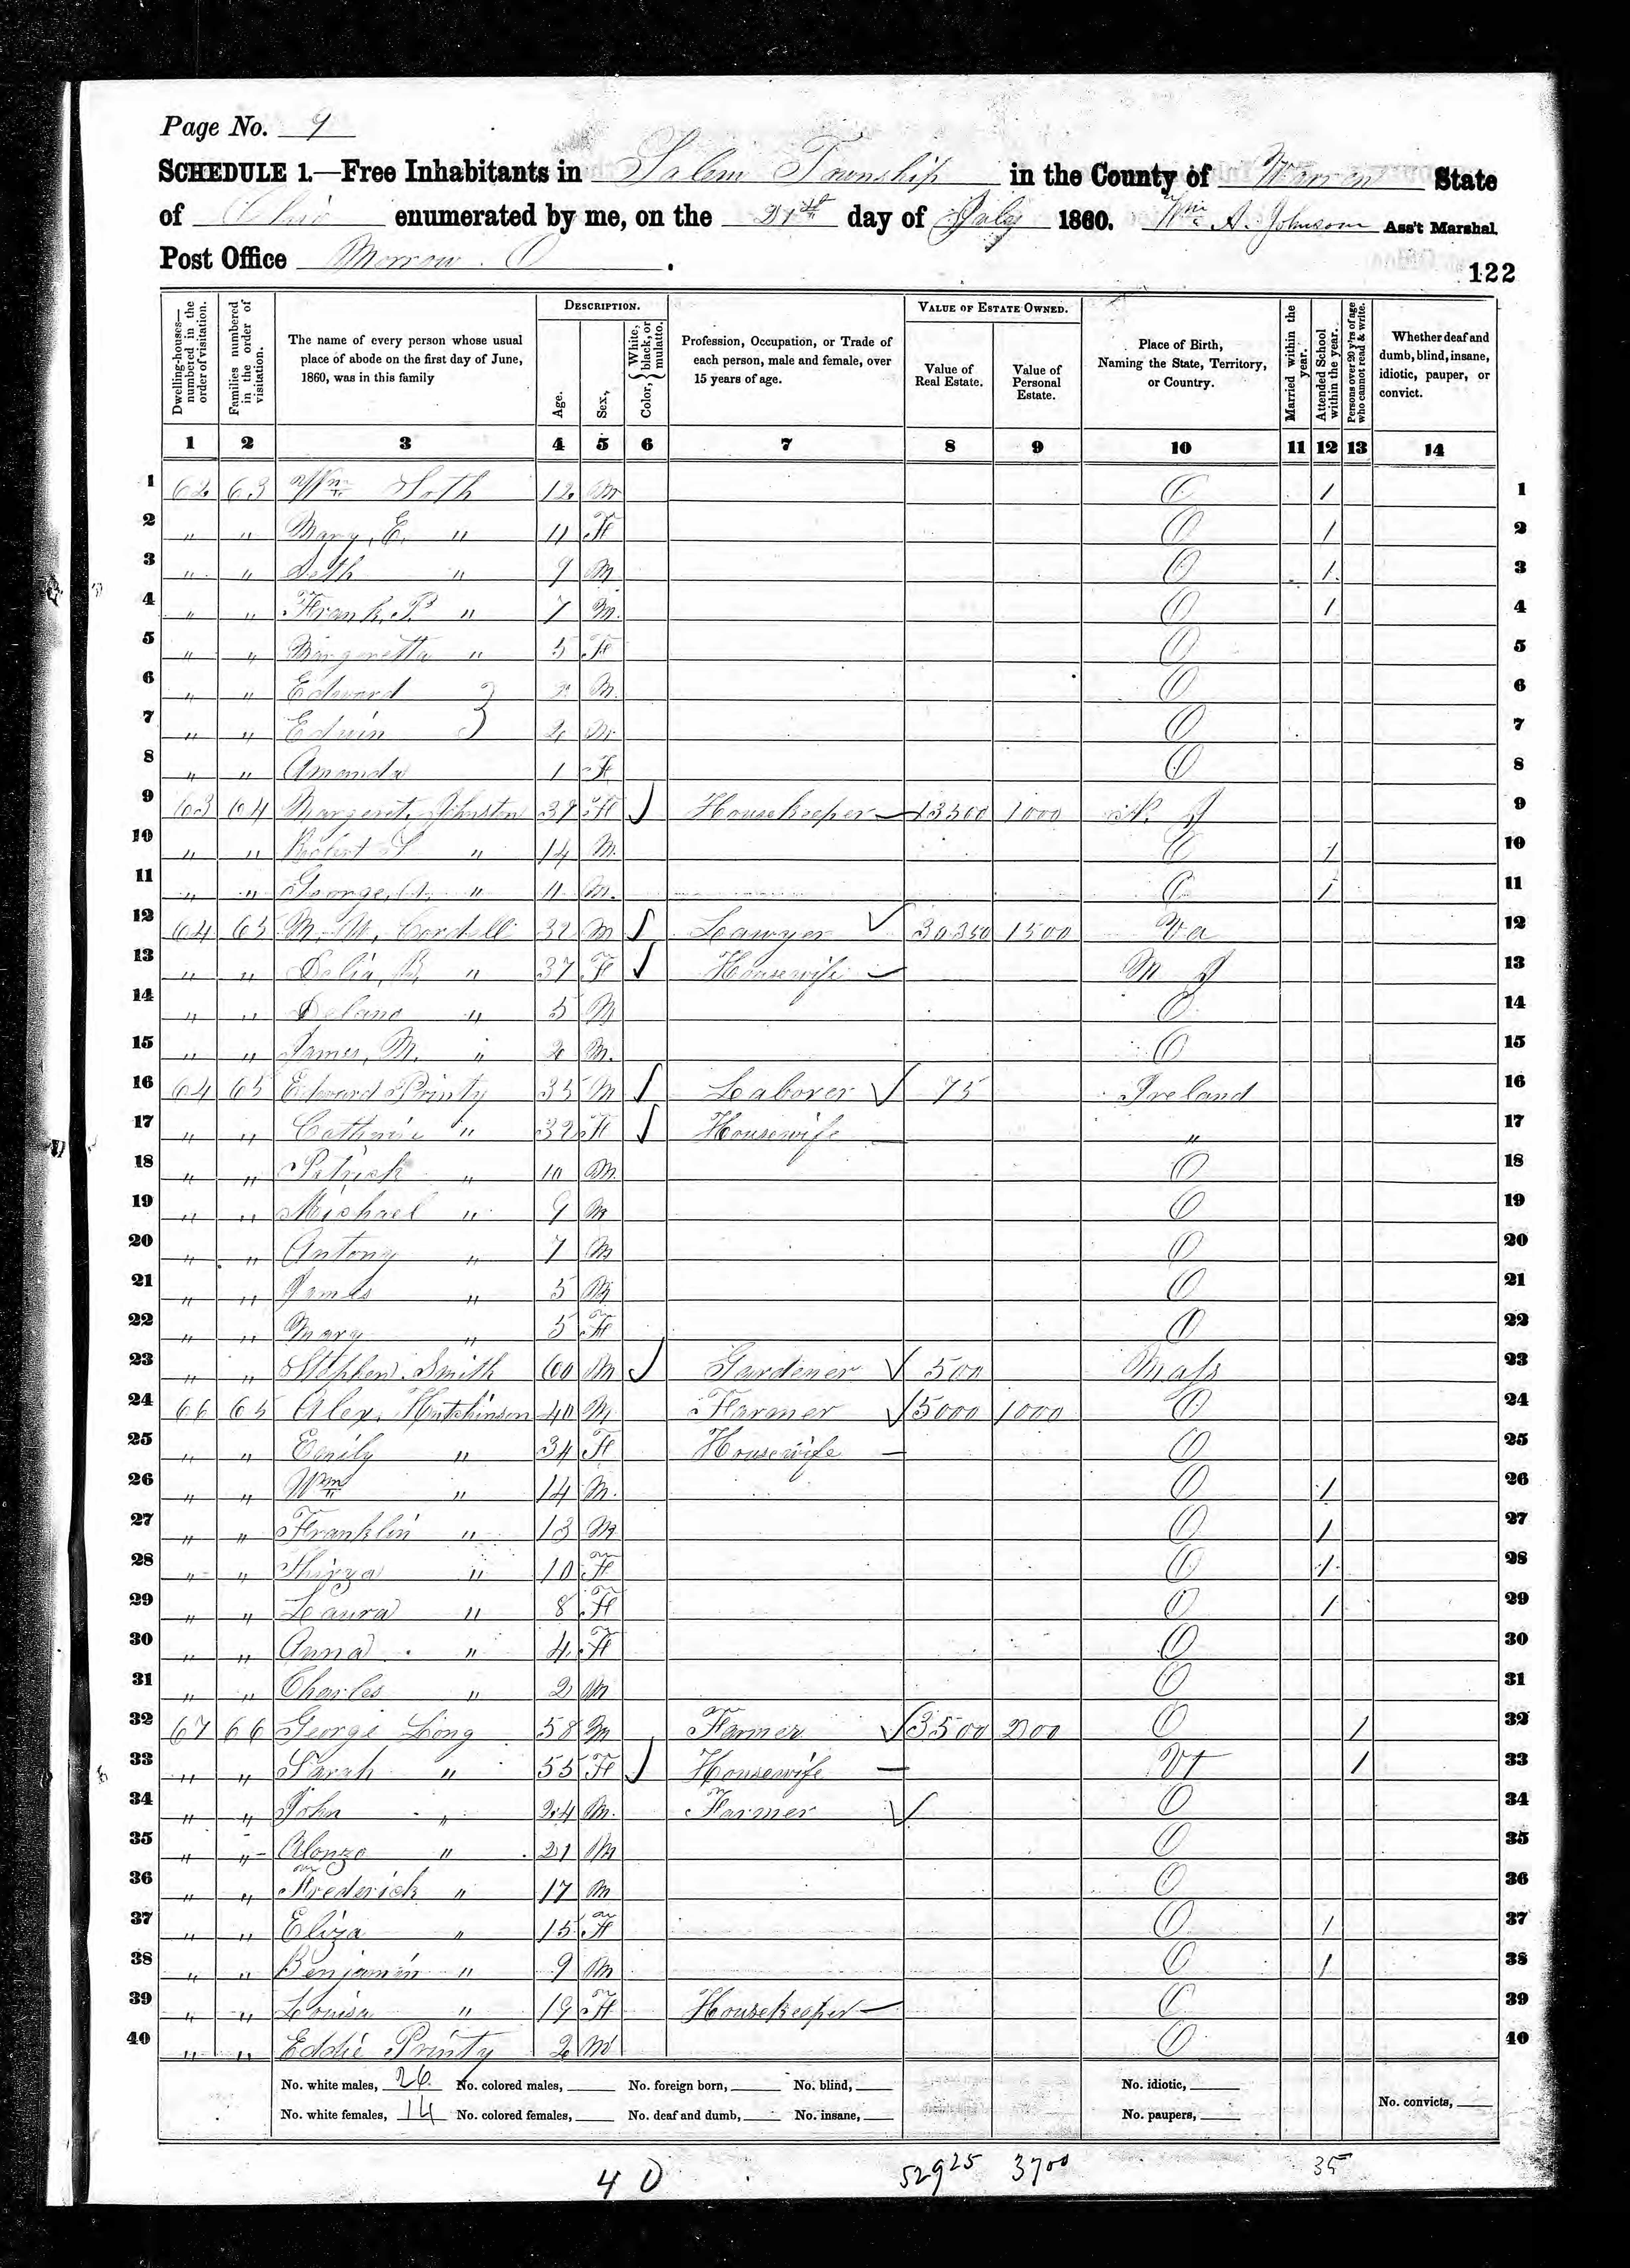 Page No. 9
SCHEDULE 1.—Free Inhabitants in Salem Township in the County of Warren State
of Ohio enumerated by me, on the 21st day of July 1860. Wm A. Johnson Ass't Marshal.
Post Office Morrow. O.
122
Dwelling-houses—numbered in the order of visitation. Families numbered in the order of visitation. The name of every person whose usual place of abode on the first day of June, 1860, was in this family DESCRIPTION. Age. Sex, Color, White, black, or mulatto. Profession, Occupation, or Trade of each person, male and female, over 15 years of age. VALUE OF ESTATE OWNED. Value of Real Estate. Value of Personal Estate. Place of Birth, Naming the State, Territory, or Country. Married within the year. Attended School within the year. Persons over 20 y'rs of age who cannot read & write. Whether deaf and dumb, blind, insane, idiotic, pauper, or convict.
1 2 3 4 5 6 7 8 9 10 11 12 13 14
1 62 63 Wm 12 M O 1 1
2 " " Mary, E. " 11 F O 1 2
3 " " Seth " 9 M O 1 3
4 " " Frank, P. " 7 M. O 1 4
5 " " Margaretta " 5 F O 5
6 " " Edward 2 M. O 6
7 " " Edwin 2 M O 7
8 " " Amanda 1 F O 8
9 63 64 Margaret Johnston 39 F Housekeeper 13500 1000 N. J 9
10 " " Robert " 14 M. O 1 10
11 " " George, A. " 11 M. O 1 11
12 64 65 M. M. Cordell 32 M Lawyer 30350 1500 Va 12
13 " " Delia, B. " 37 F Housewife M J 13
14 " " Delano " 5 M O 14
15 " " James, M. " 2 M. O 15
16 64 65 Edward Printy 35 M Laborer 75 Ireland 16
17 " " Catherine " 32 F Housewife " 17
18 " " Patrick " 10 M. O 18
19 " " Michael " 9 M O 19
20 " " Antony " 7 M O 20
21 " " James " 5 M O 21
22 " " Mary " 5 F O 22
23 " " Stephen Smith 60 M Gardener 500 Mass 23
24 66 65 Alex. Hutchinson 40 M Farmer 5000 1000 O 24
25 " " Emily " 34 F Housewife O 25
26 " " Wm " 14 M. O 1 26
27 " " Franklin " 13 M O 1 27
28 " " Thirza " 10 F O 1 28
29 " " Laura " 8 F O 1 29
30 " " Anna " 4 F O 30
31 " " Charles " 2 M O 31
32 67 66 George Long 58 M Farmer 3500 200 O 1 32
33 " " Sarah " 55 F Housewife Vt 1 33
34 " " John " 24 M. Farmer O 34
35 " " Alonzo " 21 M O 35
36 " " Frederick " 17 M O 36
37 " " Eliza " 15 F O 1 37
38 " " Benjamin " 9 M O 1 38
39 " " Louisa " 19 F Housekeeper O 39
40 " " Eddie Printy 2 M O 40
No. white males, 26 No. colored males, No. foreign born, No. blind, No. idiotic,
No. white females, 14 No. colored females, No. deaf and dumb, No. insane, No. paupers, No. convicts,
40 52925 3700 35